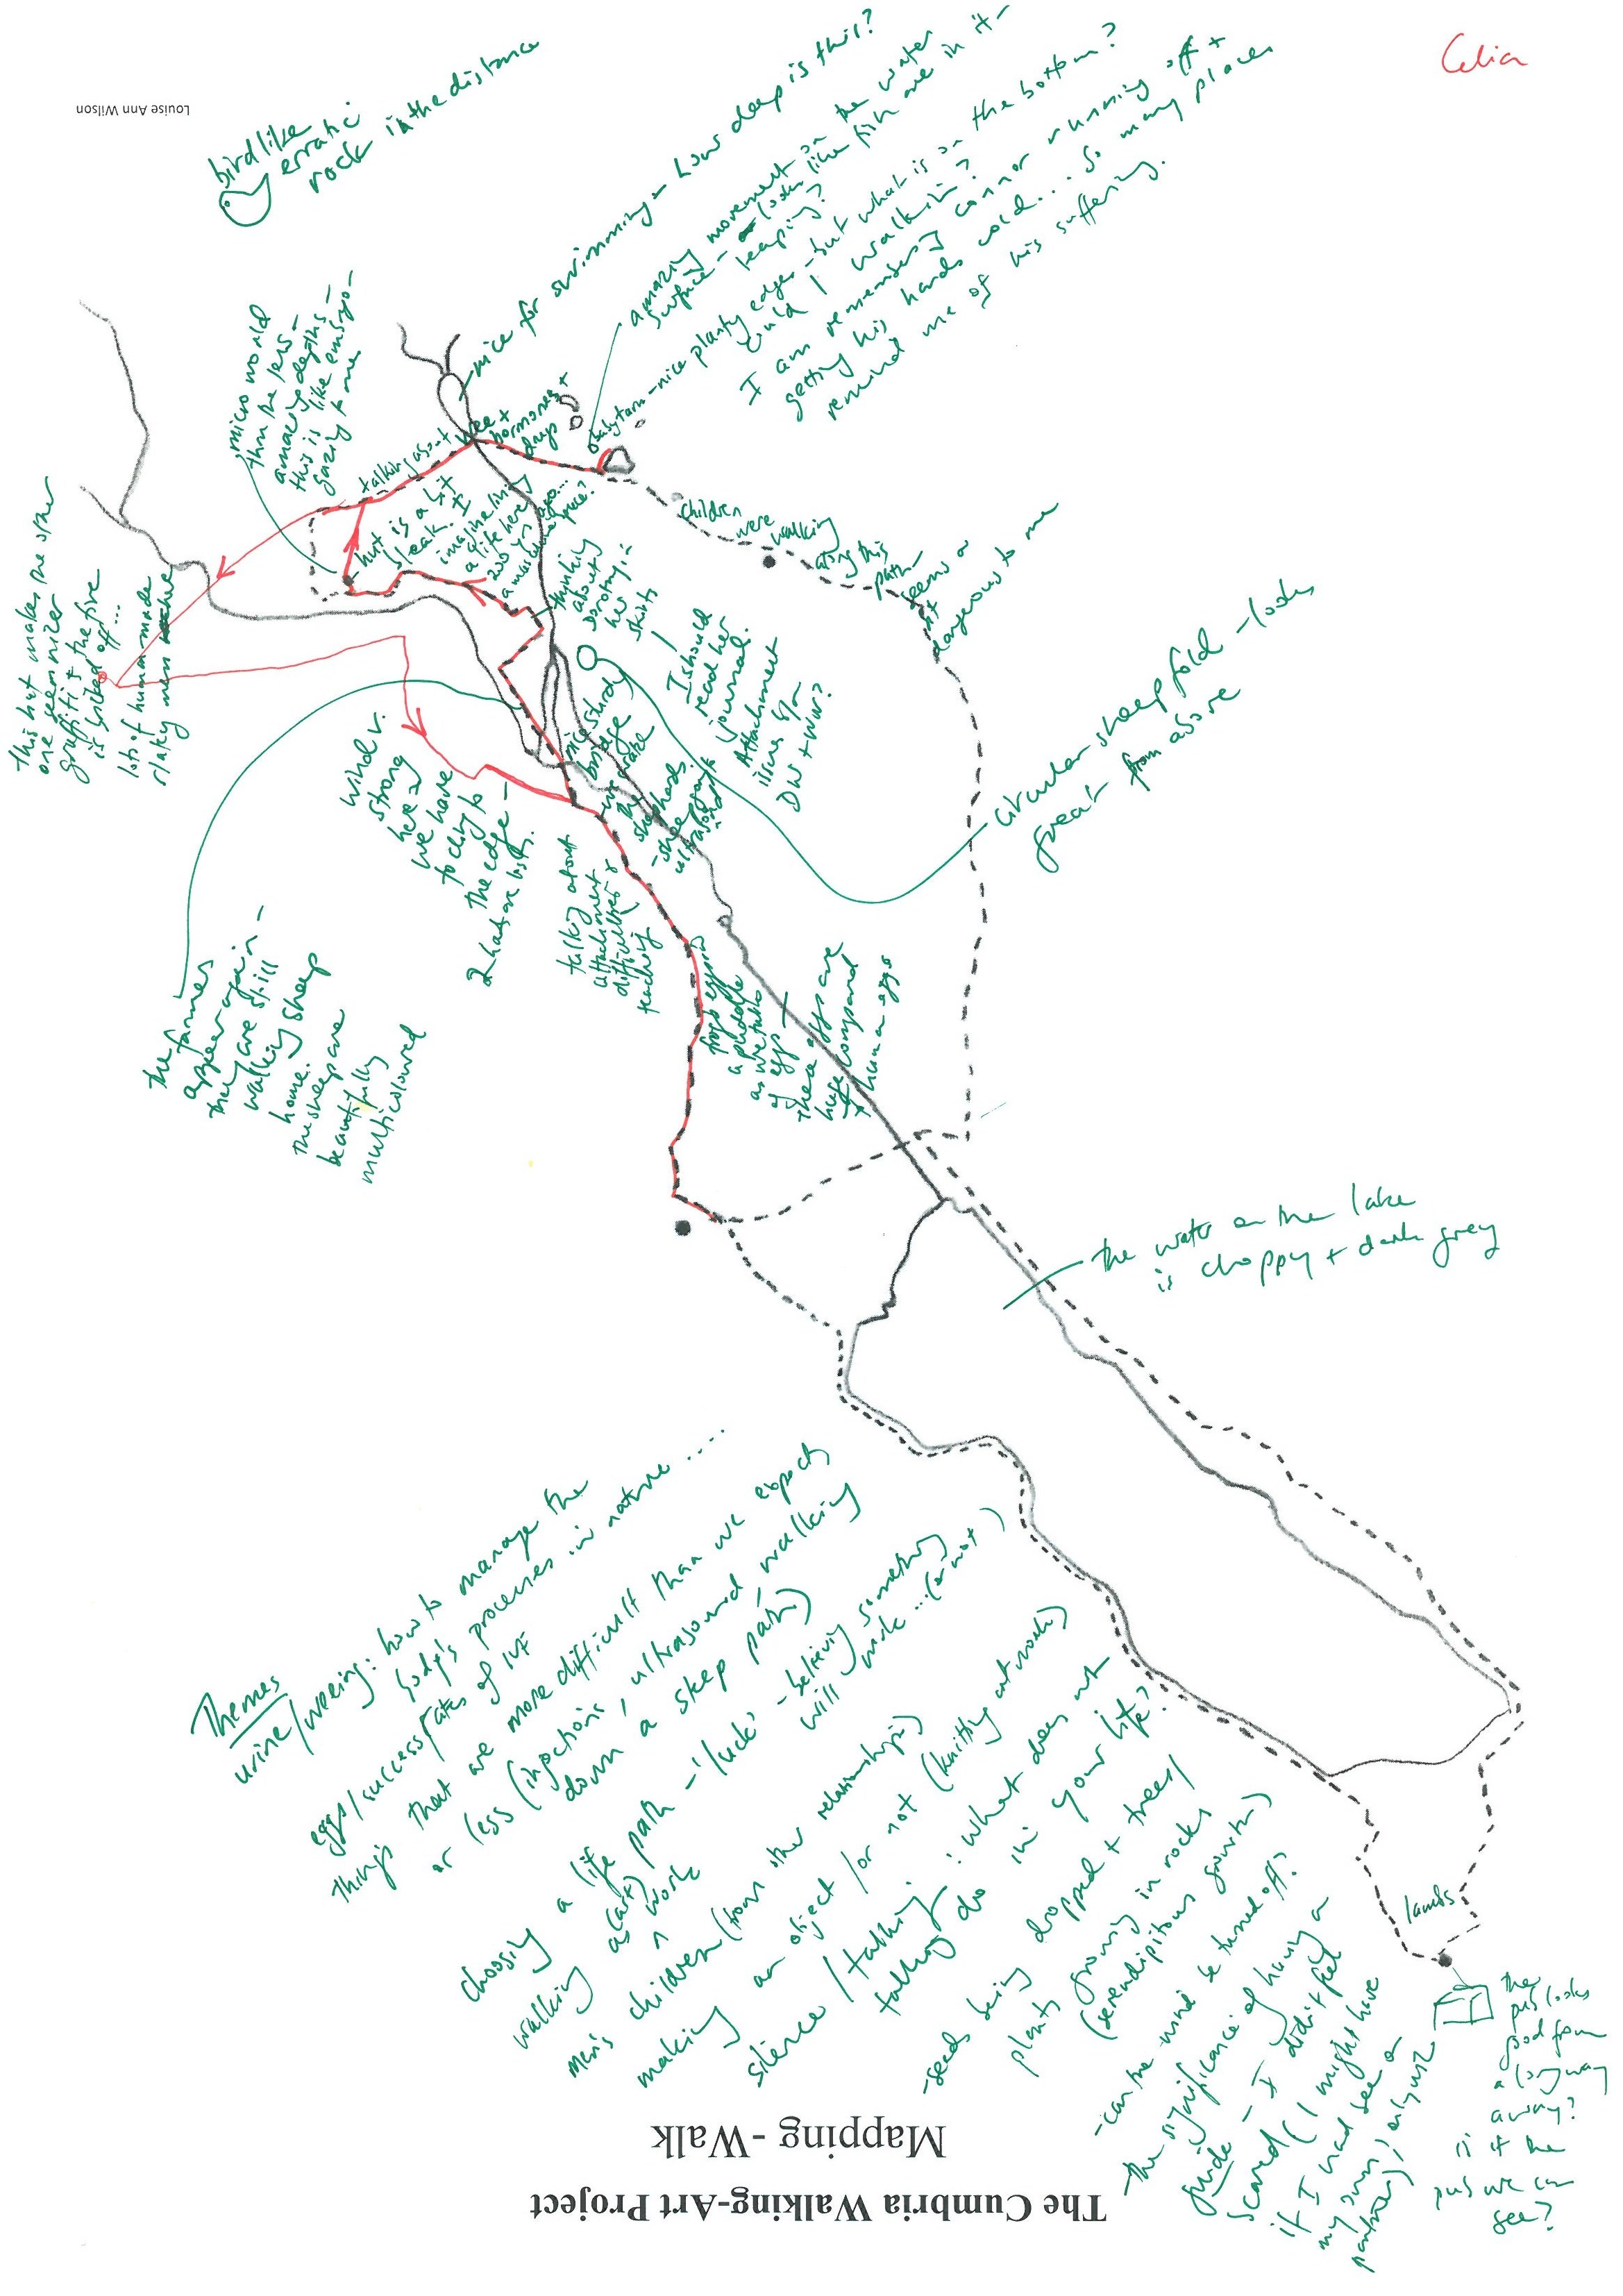 Celia
Louise Ann Wilson
birdlike
erratic
rock in the distance
nice for swimming - how deep is this?
amazing movement on the water
surface - looks like fish are in it -
leaping?
babytarn - nice planty edges - but what is on the bottom?
could I walk in?
I am remembering Connor running off +
getting his hands cold... so many places
remind me of his suffering.
micro world
thru the lens -
amazing depths -
this is like embryo-
gazing to me
talking about wee +
hormones +
drugs
hut is a bit
bleak. I
imagine living
a life here
200 yrs ago...
a masculine space?
children were walking
along this
path -
seems a
bit
dangerous to me
thinking
about
Dorothy in
her
skirts
I should
read her
journal.
Attachment
issues b/n
DW + WW?
this hut makes the other
one seem nicer
graffiti + the fire
is boxed off...
lots of human made
slaty
wind v.
strong
here
we have
to cling to
the edge -
2 hats on both.
nice sturdy
bridge
we make
the
shepherds
- sheep going
ultrasound
circular sheepfold - looks
great from above
talking about
attachment
difficulties &
teaching
frogs eggs in
a puddle
as we talk
of eggs
these eggs are
huge compared
to human eggs
the farmers
appear again -
they are still
walking sheep
home.
the sheep are
beautifully
multicoloured
the water on the lake
is choppy + dark grey
Themes
urine/weeing: how to manage the
body's processes in nature ....
eggs/success rates of IVF
things that are more difficult than we expect
or less (injections, ultrasound, walking
down a steep path)
choosing a life path - 'luck' - believing something
will work ...(or not)
walking as (art) work
men's children (from other relationships)
making an object / or not (knitting artwork)
silence / talking : what does not
talking do in your life?
- seeds being dropped + trees/
plants growing in rocks
(serendipitous growth)
- can the mind be turned off?
- the significance of having a
guide - I didn't feel
scared (I might have
if I had been on
my own, or just
partner),
lambs
the
pub looks
good from
a long way
away?
is it the
pub we can
see?
Mapping - Walk
The Cumbria Walking-Art Project